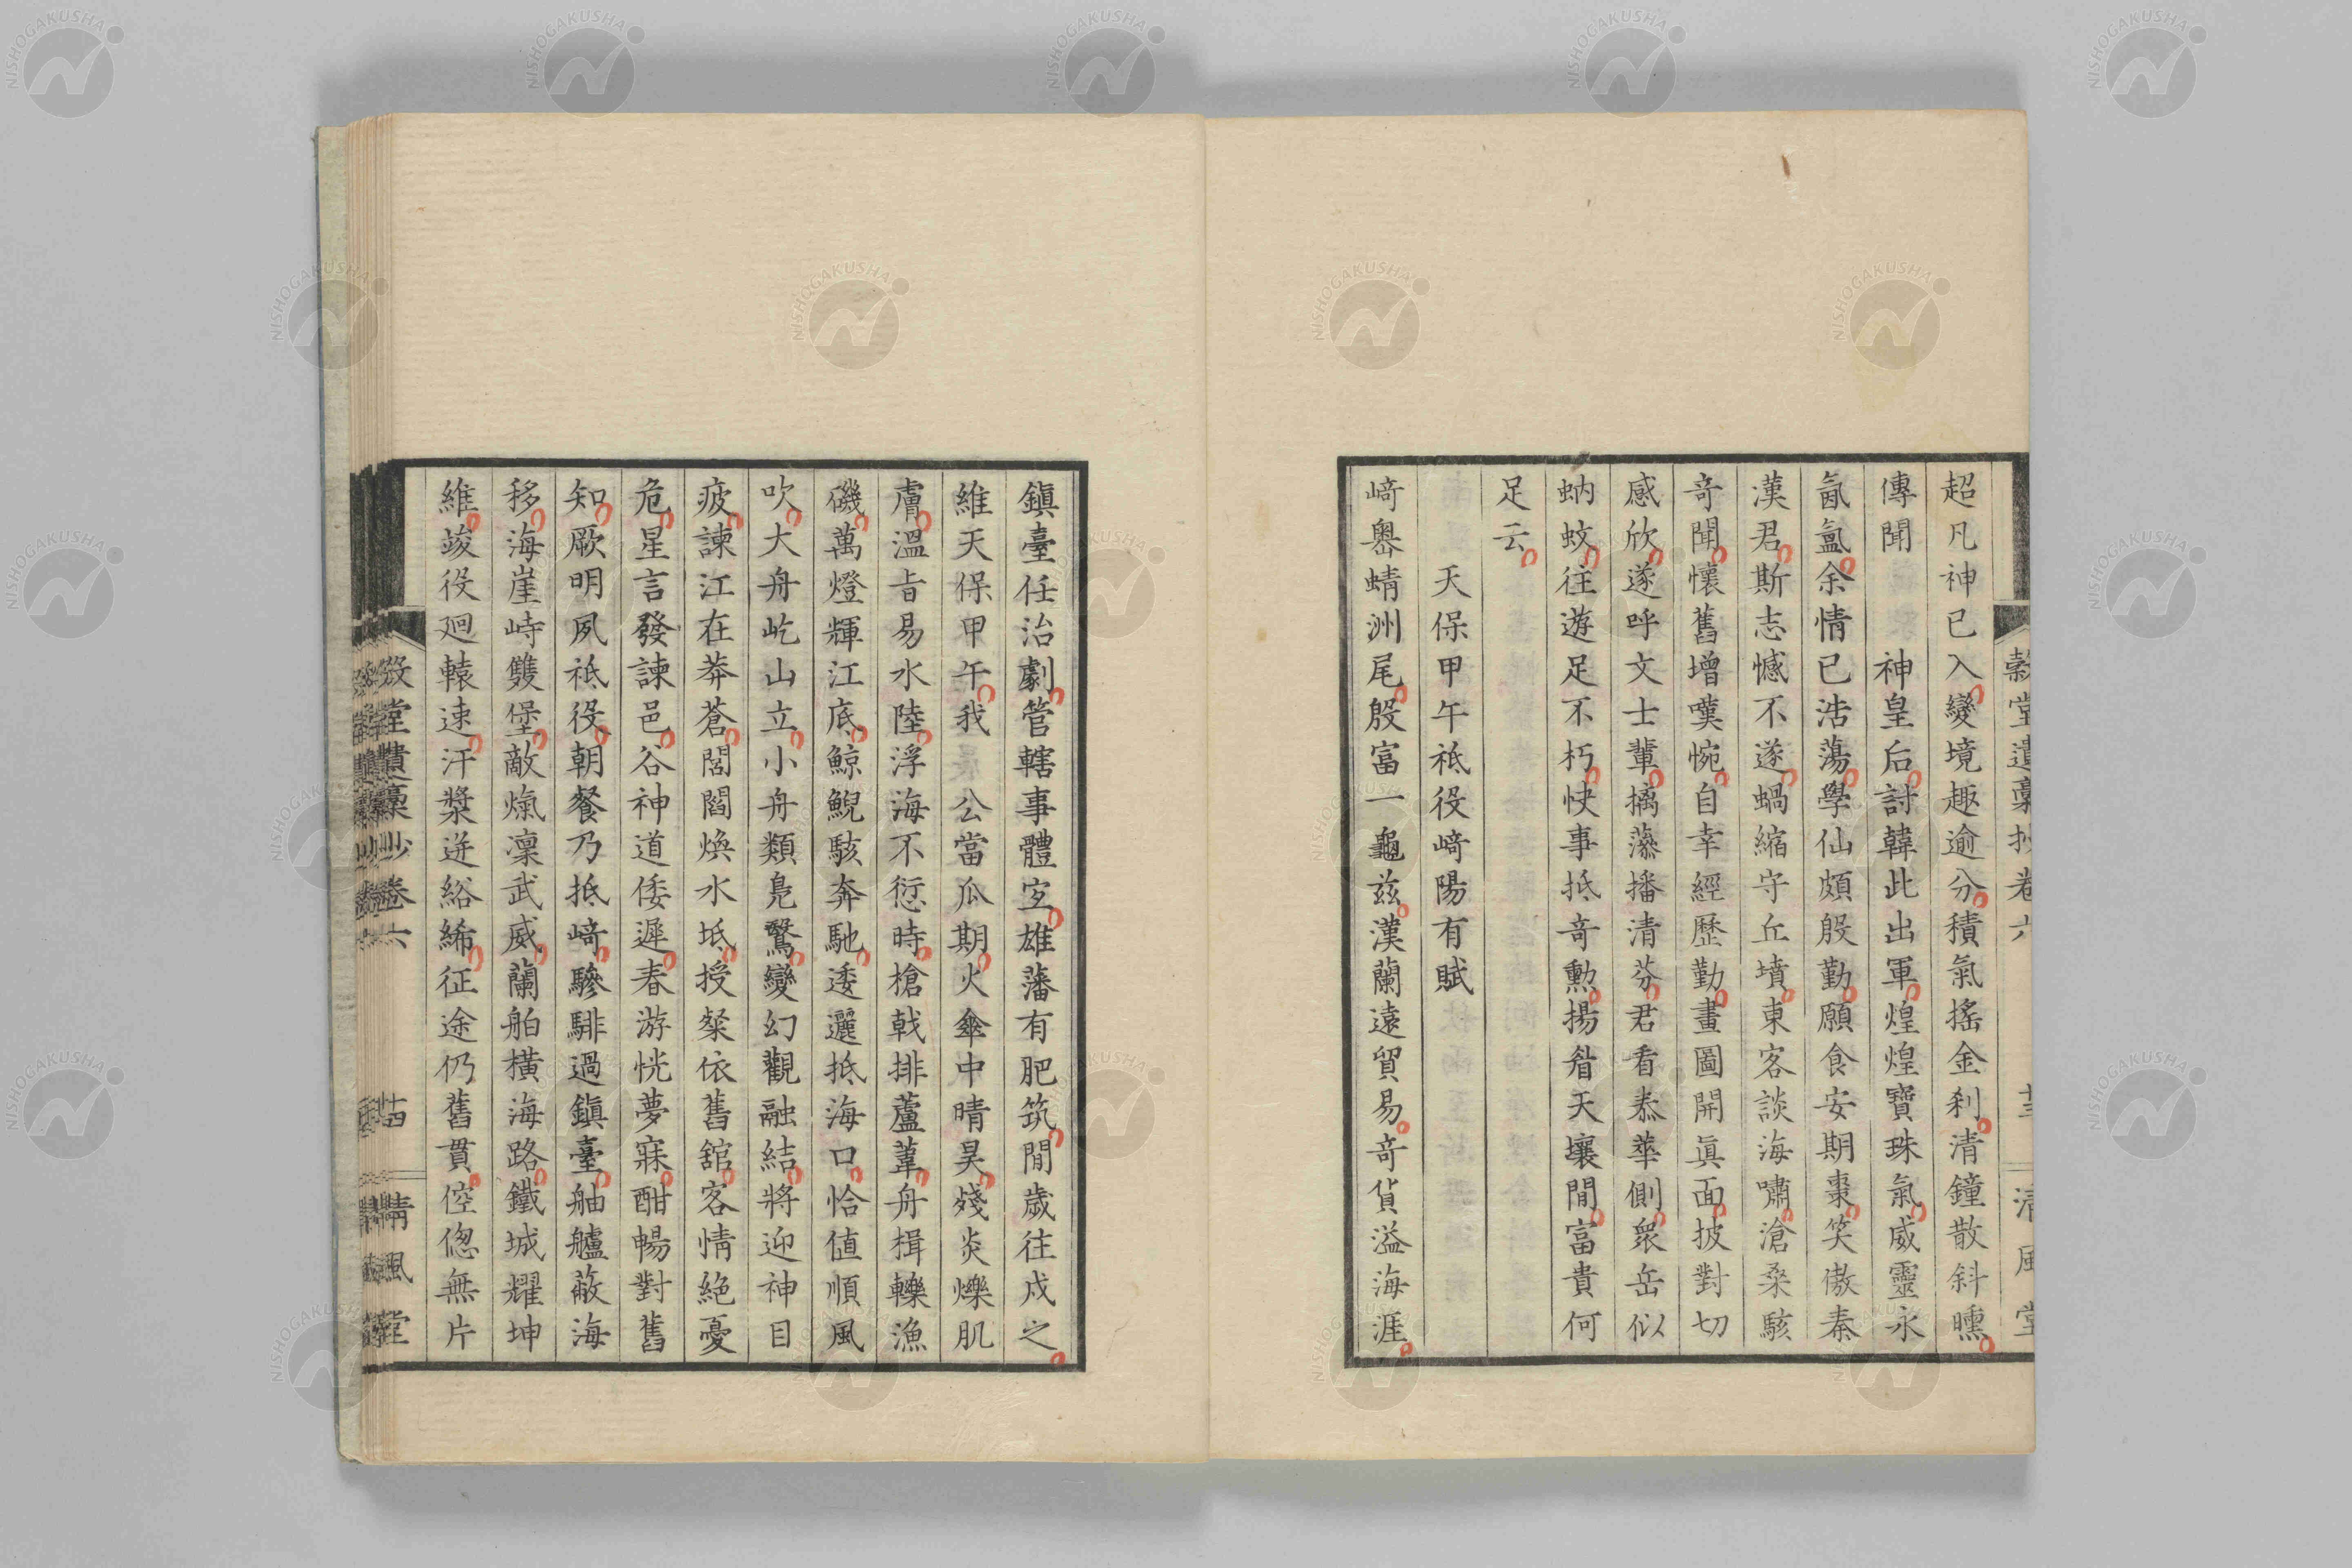 穀堂遺稾抄卷六 廿三 清風堂
超凡神已入變境趣逾分積氣搖金刹清鐘散斜曛
傳聞 神皇后討韓此出軍煌煌寶珠氣威靈永
氤氳余情已浩蕩學仙頗殷勤願食安期棗笑傲秦
漢君斯志憾不遂蝸縮守丘墳東客談海嘯滄桑駭
奇聞懷舊增嘆惋自幸經歷勤畫圖開眞面披對切
感欣遂呼文士輩摛藻播清芬君看泰華側衆岳似
蚋蚊往遊足不朽快事抵奇勲揚眉天壤間富貴何
足云
天保甲午祗役﨑陽有賦
﨑嶴蜻洲尾殷富一龜兹漢蘭遠貿易奇貨溢海涯
鎭臺任治劇管轄事體宜雄藩有肥筑閒歲往戍之
維天保甲午我 公當瓜期火傘中晴昊殘炎爍肌
膚溫旨易水陸浮海不愆時槍戟排蘆葦舟楫轢漁
磯萬燈輝江底鯨鯢駭奔馳逶邐抵海口恰値順風
吹大舟屹山立小舟類鳧鷖變幻觀融結將迎神目
疲諫江在莽蒼閭閻煥水坻授粲依舊舘客情絶憂
危星言發諫邑谷神道倭遲春游恍夢寐酣暢對舊
知厥明夙祗役朝餐乃抵﨑驂騑過鎭臺舳艫蔽海
移海崖峙雙堡敵𤌴凜武威蘭舶橫海路鐵城耀坤
維竣役廻轅速汗漿迸綌絺征途仍舊貫倥偬無片
穀堂遺稾抄卷六 廿四 清風堂